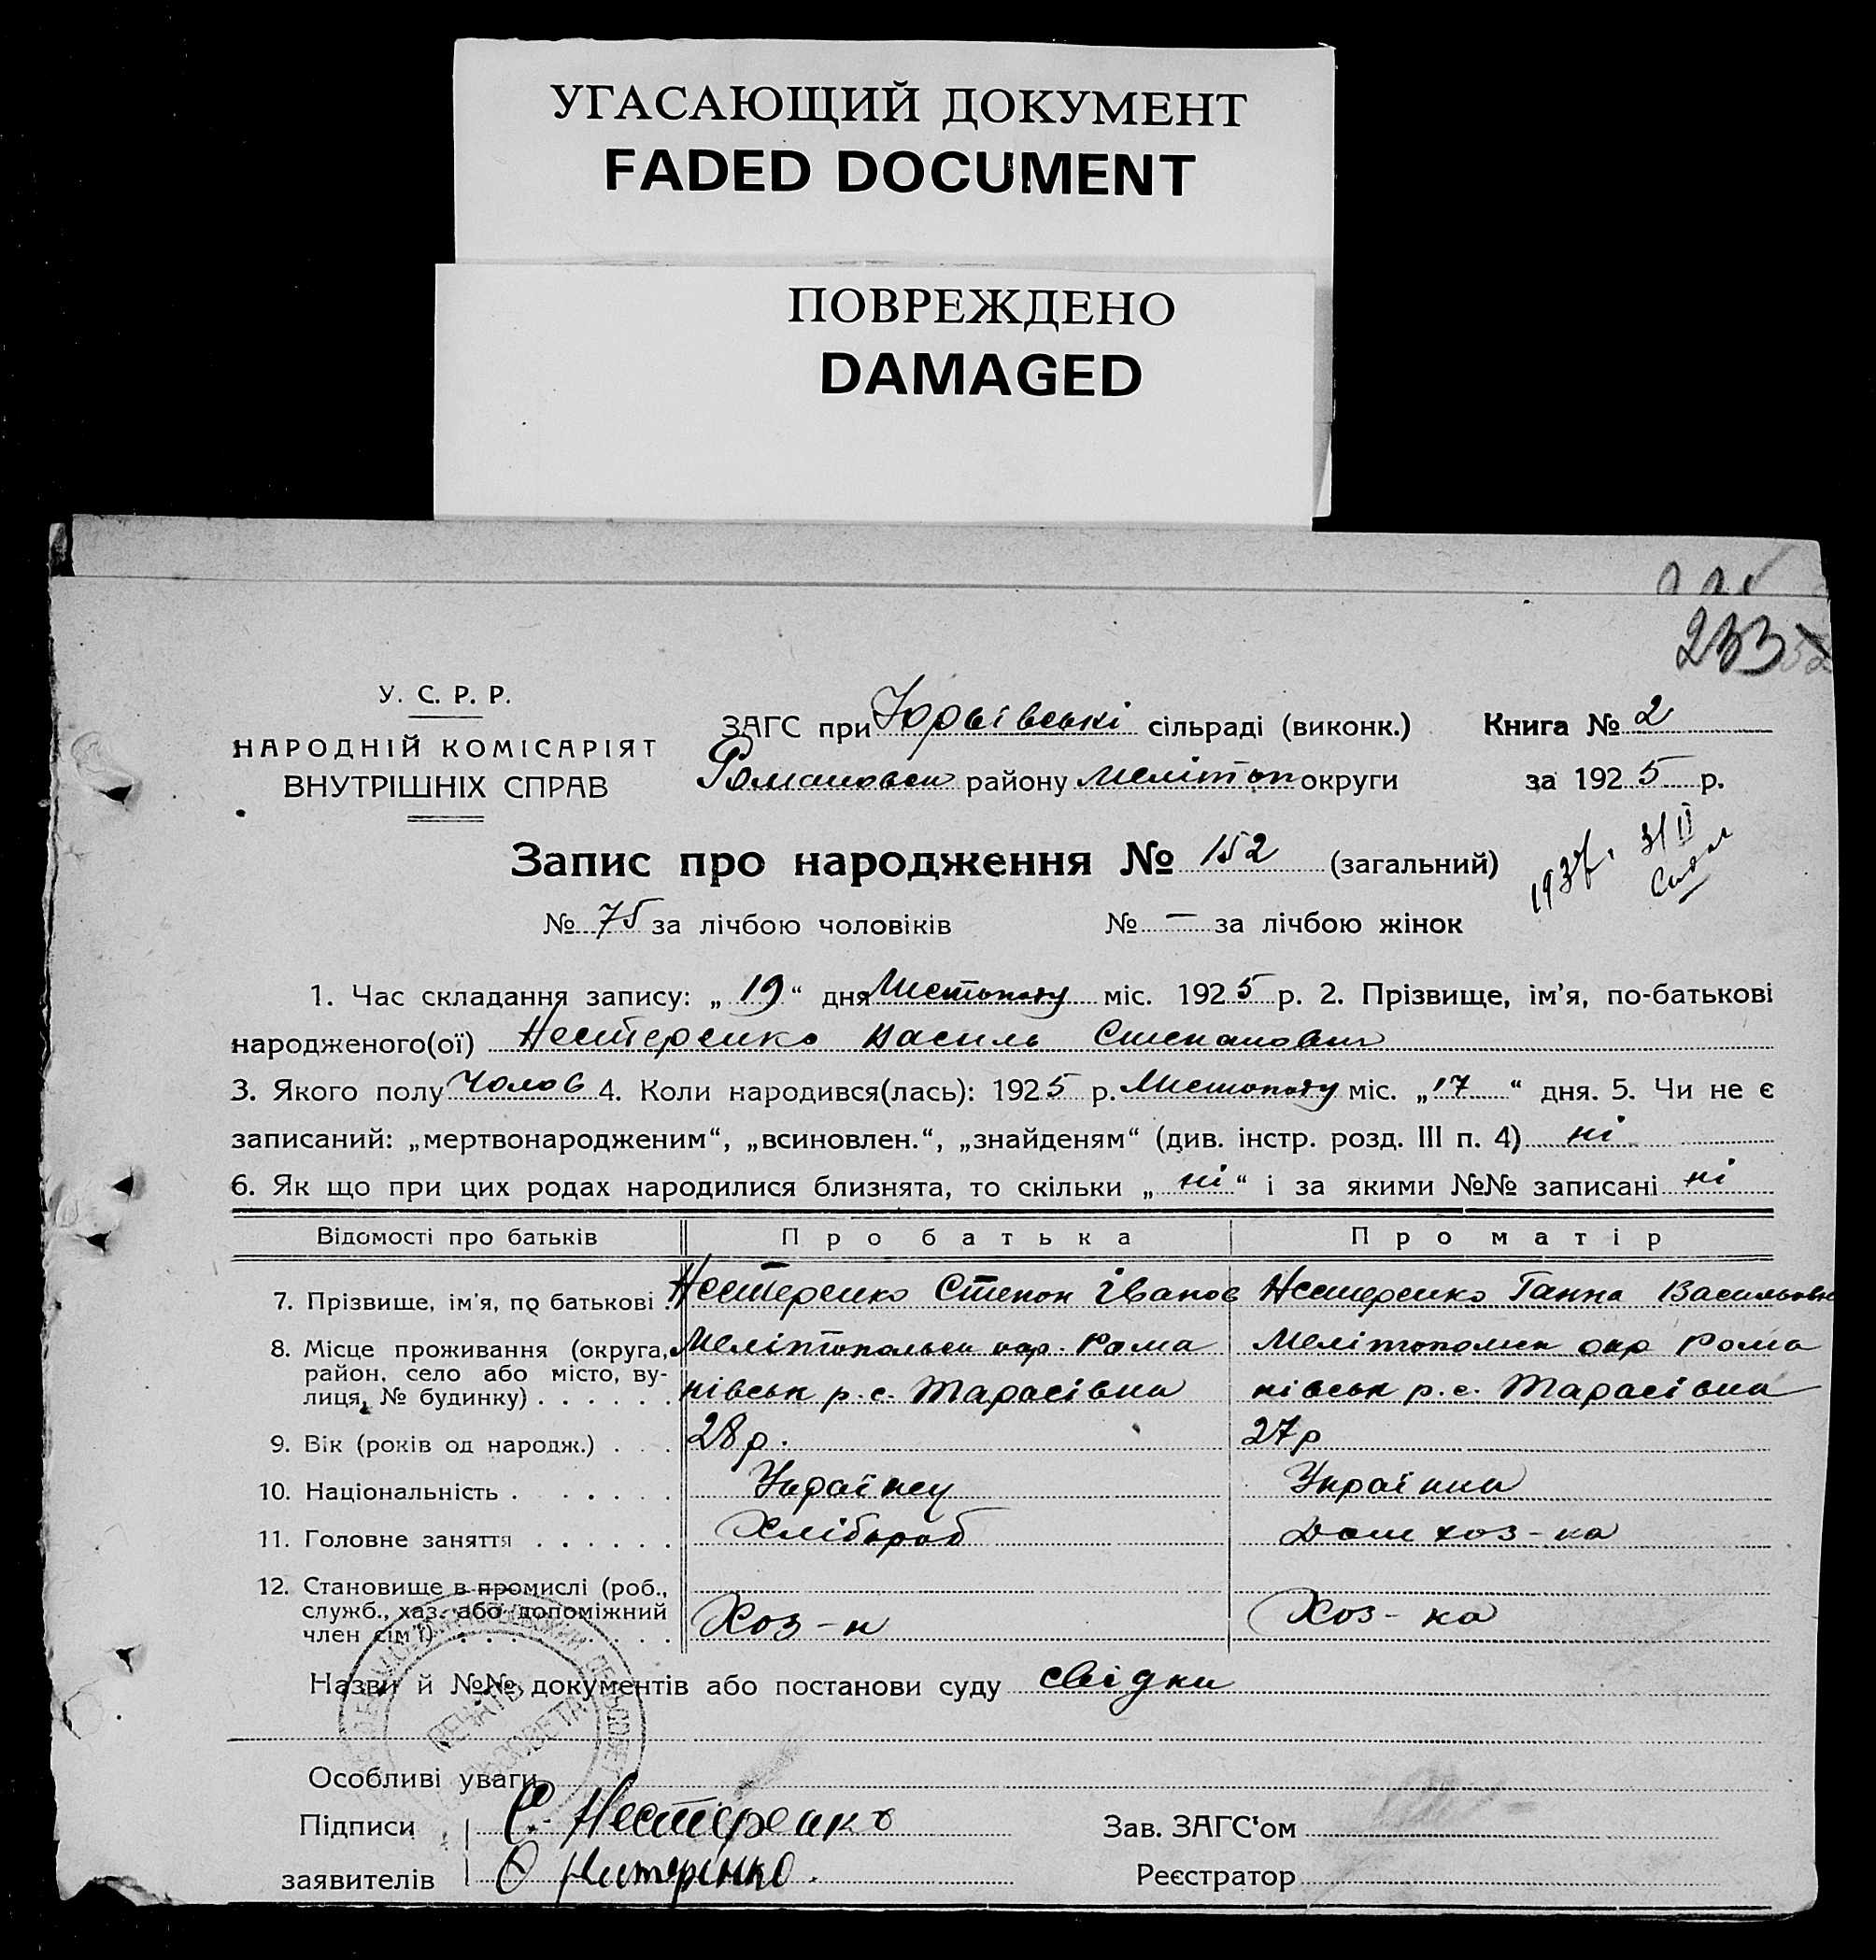 УГАСАЮЩИЙ ДОКУМЕНТ
FADED DOCUMENT
ПОВРЕЖДЕНО
DAMAGED
233
У. С. Р. Р.
НАРОДНІЙ КОМІСАРІЯТ
ВНУТРІШНІХ СПРАВ
ЗАГС при Юрьївські сільраді (виконк.) Книга № 2
Романовськ району Мелітоп округи за 1925 р.
Запис про народження № 152 (загальний)
1937р. 3/II
№ 75 за лічбою чоловіків № — за лічбою жінок
1. Час складання запису: „19“ дня Листопаду міс. 1925 р. 2. Прізвище, ім'я, по-батькові
народженого(ої) Нестеренко Василь Степанович
3. Якого полу Чолов 4. Коли народився(лась): 1925 р. Листопаду міс. „17“ дня. 5. Чи не є
записаний: „мертвонародженим“, „всиновлен.“, „знайденям“ (див. інстр. розд. III п. 4) ні
6. Як що при цих родах народилися близнята, то скільки „ні“ і за якими №№ записані ні
Відомості про батьків Про батька Про матір
7. Прізвище, ім'я, по батькові. Нестеренко Степон Іванов Нестеренко Ганна Васильовн
8. Місце проживання (округа, Мелітопольск окр. Рома Мелітопольск окр Рома
район, село або місто, ву-
лиця, № будинку) . . . . . . нівськ р. с. Тарасівка нівськ р. с. Тарасівка
9. Вік (років од народж.) . . . 28 р. 27 р
10. Національність . . . . . . Українец Українка
11. Головне заняття . . . . . . Хлібороб Дом хоз-ка
12. Становище в промислі (роб.,
служб., хаз. або допоміжний
член сім'ї) . . . . . . Хоз-н Хоз-ка
Назви й №№ документів або постанови суду свідки
ПЕЧАТЬ
Особливі уваги
Підписи С. Нестеренко Зав. ЗАГС'ом
заявителів Реєстратор